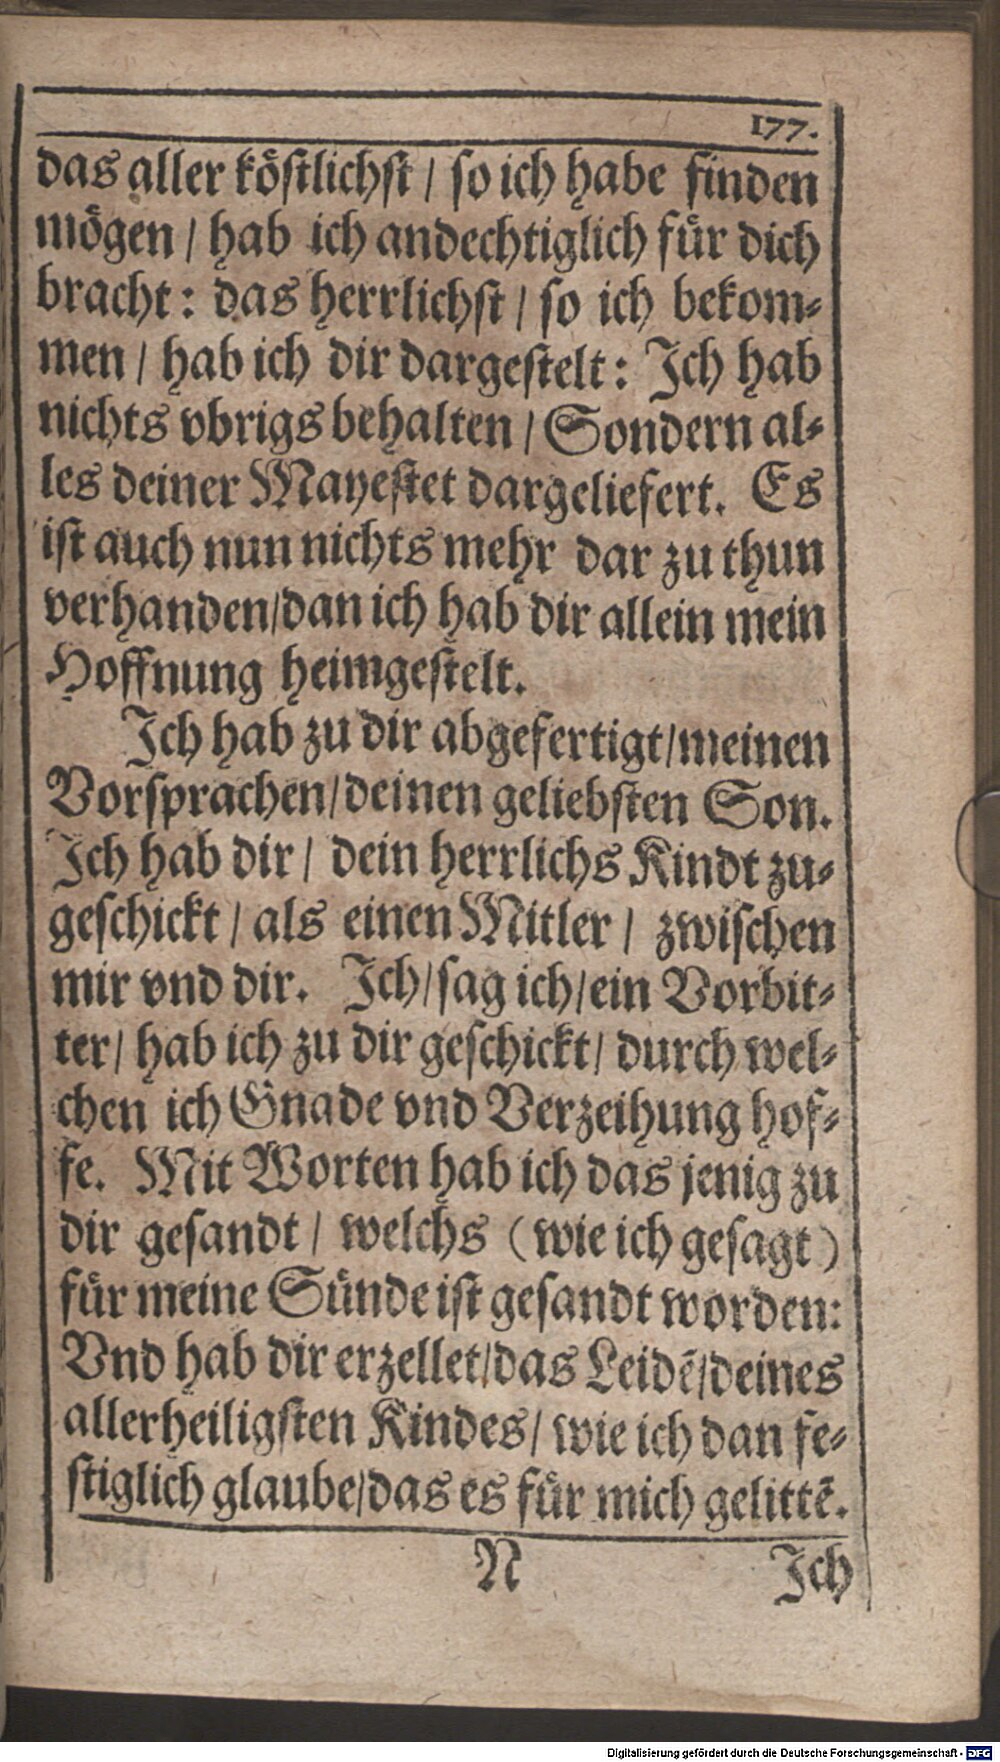 177.
das aller köstlichst / so ich habe finden
mögen / hab ich andechtiglich für dich
bracht: das herrlichst / so ich bekom-
men / hab ich dir dargestelt: Ich hab
nichts vbrigs behalten / Sondern al-
les deiner Mayestet dargeliefert. Es
ist auch nun nichts mehr dar zu thun
verhanden/dan ich hab dir allein mein
Hoffnung heimgestelt.
Ich hab zu dir abgefertigt/meinen
Vorsprachen/deinen geliebsten Son.
Ich hab dir / dein herrlichs Kindt zu-
geschickt / als einen Mitler / zwischen
mir vnd dir. Ich/sag ich/ein Vorbit-
ter/ hab ich zu dir geschickt/ durch wel-
chen ich Gnade vnd Verzeihung hof-
fe. Mit Worten hab ich das jenig zu
dir gesandt / welchs (wie ich gesagt)
für meine Sünde ist gesandt worden:
Vnd hab dir erzellet/das Leidē/deines
allerheiligsten Kindes/ wie ich dan fe-
stiglich glaube/das es für mich gelittē.
N Ich
Digitalisierung gefördert durch die Deutsche Forschungsgemeinschaft - DFG